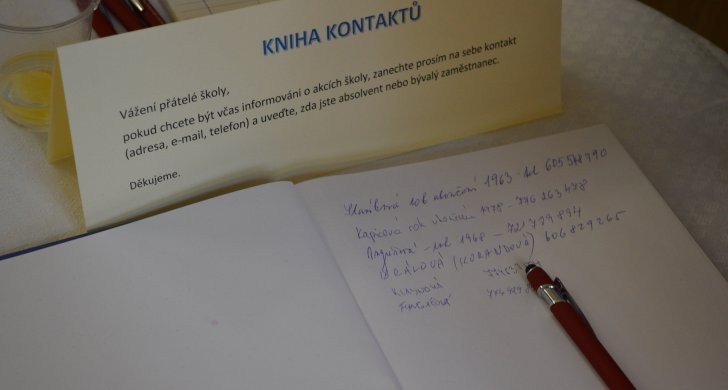 KNIHA KONTAKTŮ
Vážení přátelé školy,
pokud chcete být včas informováni o akcích školy, zanechte prosím na sebe kontakt
(adresa, e-mail, telefon) a uveďte, zda jste absolvent nebo bývalý zaměstnanec.
Děkujeme.
rok ukončení 1963 - tel 605 548 790
Kapicová rok ukončení 1978 - 776 263 478
rok 1968 - 721 739 894
KRÁLOVÁ (KORANDOVÁ) 606 829 265